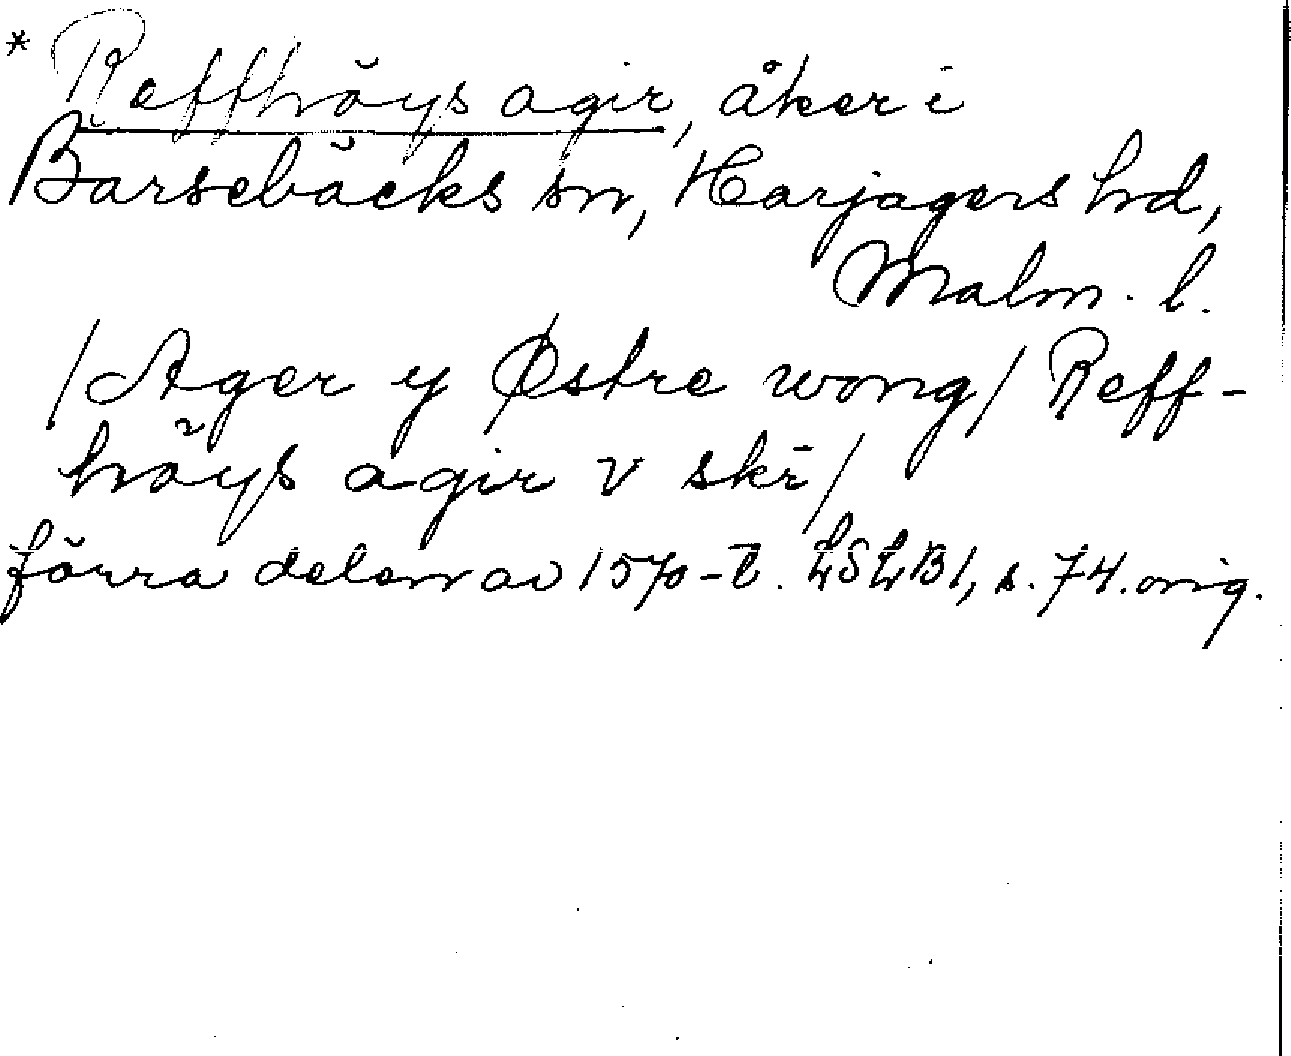 * Reffhöys agir, åker i
Barsebäcks sn, Harjagers hd,
Malm. l.
/Ager y Østre wong/ Reff-
höys agir v skr/
förra delen av 1570-t. LSLB1, s. 74. orig.